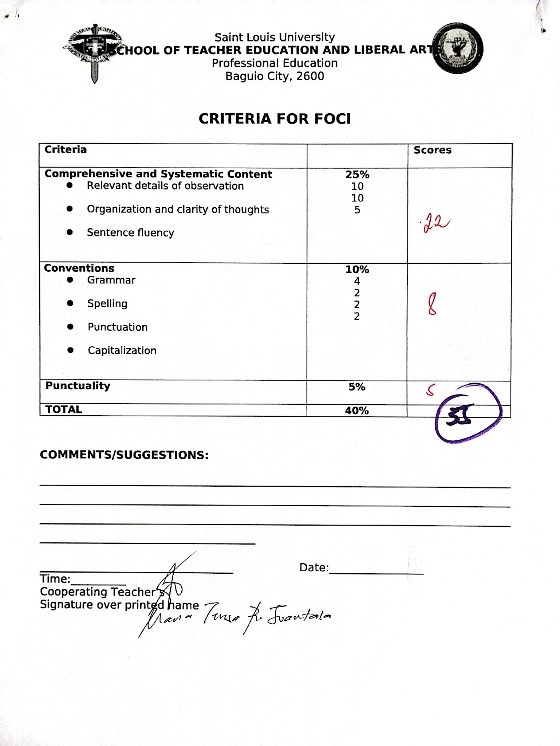 Saint Louis University
SCHOOL OF TEACHER EDUCATION AND LIBERAL ARTS
Professional Education
Baguio City, 2600
CRITERIA FOR FOCI
Criteria Scores
Comprehensive and Systematic Content 25%
● Relevant details of observation 10
10
● Organization and clarity of thoughts 5
22
● Sentence fluency
Conventions 10%
● Grammar 4
2
● Spelling 2
8
2
● Punctuation
● Capitalization
Punctuality 5% 5
TOTAL 40% 35
COMMENTS/SUGGESTIONS:
Date:
Time:
Cooperating Teacher's
Signature over printed name
Maria Teresa R.